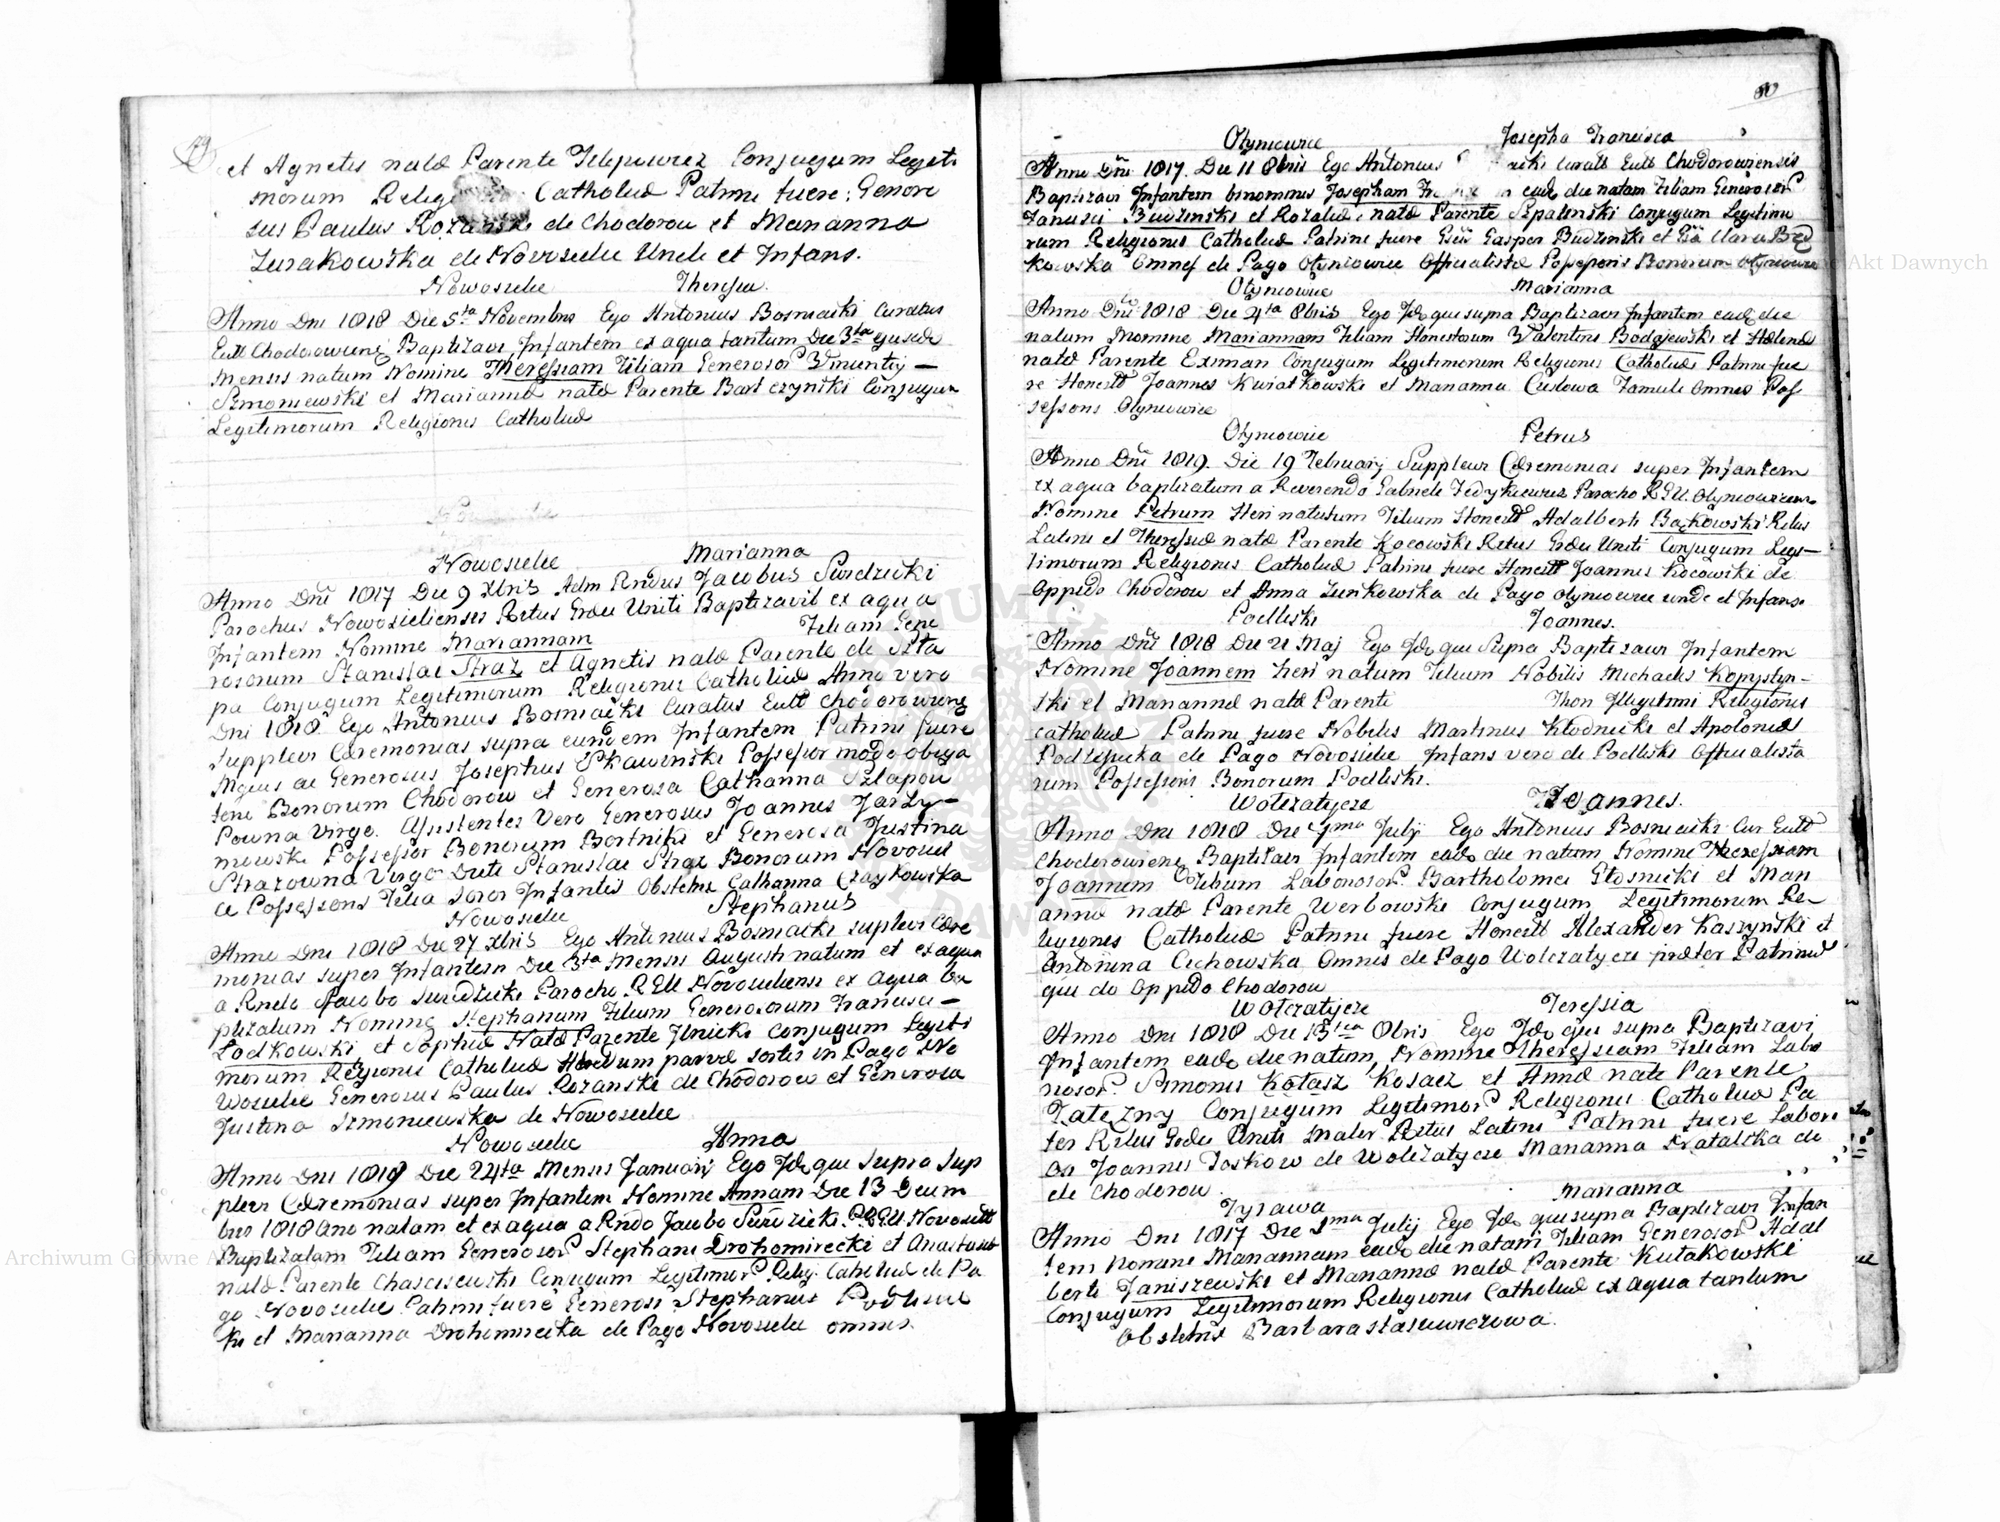 49
et Agnetis natæ Parente Telepowicz Conjugum Legiti
morum Religionis Catholicæ Patrini fuere: Genero
sus Paulus Rozanski de Chodorow et Marianna
Zurakowska de Novosielce Unde et Infans.
Nowosielce Theressia.
Anno Dni 1818 Die 5ta Novembris Ego Antonius Bosniacki Curatus
Eccl Chodoroviens Baptizavi Infantem ex aqua tantum Die 3tia ejusdem
Mensis natum Nomine Theressiam Filiam Generosor
Szmoniewski et Mariannæ natæ Parente Bartczynski Conjugum
Legitimorum Religionis Catholicæ
Nowosielce Marianna
Anno Dni 1817 Die 9 Xbris Adm Rndus Jacobus Surdzicki
Parochus Nowosielienses Ritus Græci Uniti Baptizavit ex aqua
Infantem Nomine Mariannam Filiam Gene
rosorum Stanislai Straz et Agnetis natæ Parente de Szta
pa Conjugum Legitimorum Religionis Catholicæ Anno vero
Dni 1818 Ego Antonius Bosniacki Curatus Eccl Chodoroviens
Supplevi Cæremonias supra eundem Infantem Patrini fuere
Mgnus ac Generosus Josephus Skawinski Possessor modo obliga
torio Bonorum Chodorow et Generosa Catharina Szlapow
Powna Virgo. Assistentes Vero Generosus Joannes Jarzy-
mowski Possessor Bonorum Bortniki et Generosa Justina
Strazowna Virgo Dicti Stanislai Straz Bonorum Novosiel
ce Possessoris Filia Soror Infantis Obstetrix Catharina Czaykowska
Nowosielce Stephanus
Anno Dni 1818 Die 27 Xbris Ego Antonius Bosniacki suplevi Cære
monias super Infantem Die 3tia Mensis Augusti natum et ex aqua
a Rndo Jacobo Surdzicki Parocho R G U Novosieliensi ex aqua Ba
ptizatum Nomine Stephanum Filium Generosorum Francisci-
Lodkowski et Sophiæ Natæ Parente Ilnicki Conjugum Legiti
morum Religionis Catholicæ Hæredum parvæ sortis in Pago No
wosielce Generosus Paulus Rozanski de Chodorow et Generosa
Justina Szmoniewska de Nowosielce
Nowosielce Anna
Anno Dni 1819 Die 24ta Mensis Januarij Ego Idem qui Supra Sup
plevi Cæremonias super Infantem Nomine Annam Die 13 Decem
bris 1818 Ano natam et ex aqua a Rndo Jacobo Surdzicki P. R G U Novosiell
Baptizatam Filiam Generosor Stephani Drohomirecki et Anastasiæ
natæ Parente Conjugum Legitimor Relig: Catholicæ de Pa
go Novosielce Patrini fuere Generosi Stephanus
ki et Marianna Drohomirecka de Pago Novosielce omnes.
80
Otyniowice Josepha Francisca
Anno Dni 1817. Die 11 8bris Ego Antonius Curatt Eccl Chodoroviensis
Baptizavi Infantem binominus Josepham eadem die natam Filiam Generosor
Francisci Budzinski et Rozaliæ natæ Parente Szpalinski Conjugum Legitimo
rum Religionis Catholicæ Patrini fuere Gsus Gasper Budzinski et Gsa Clara Będ
kowska Omnes de Pago Otyniowice Officialistæ Possessoris Bonorum Otyniowice
Otyniowice Marianna
Anno Dni 1818 Die 4ta 8bris Ego Idem qui supra Baptizavi Infantem eadem die
natum Nomine Mariannam Filiam Honestorum Valentini Bodziewski et Helenæ
natæ Parente Exman Conjugum Legitimorum Religionis Catholicæ Patrini fue
re Honestt Joannes Kwiatkowski et Marianna Cuslowa Famuli Omnes Pos
sessoris Otyniowice
Otyniowice Petrus
Anno Dni 1819. Die 19 Februarij Supplevi Cæremonias super Infantem
ex aqua baptizatum a Reverendo Gabriele Fedykiewicz Parocho R G U. Otyniowicens
Nomine Petrum Heri natum Filium Honestt Adalberti Bąkowski Ritus
Latini et Theressiæ natæ Parente Kocowski Ritus Græci Uniti Conjugum Legi-
timorum Religionis Catholicæ Patrini fuere Honestt Joannes Kocowski de
Oppido Chodorow et Anna Zurkowska de Pago Otyniowice unde et Infans.
Podliski Joannes.
Anno Dni 1818 Die 21 Maj Ego Idem qui Supra Baptizavi Infantem
Nomine Joannem heri natum Filium Nobilis Michaelis Kopystyn-
ski et Mariannæ natæ Parente Thori Illegitimi Religionis
catholicæ Patrini fuere Nobiles Martinus Klodnicki et Apolonia
Podlesiecka de Pago Novosielce, Infans vero de Podliski Officialista
rum Possessoris Bonorum Podliski.
Wolczatycze Joannes.
Anno Dni 1818 Die 7ma Julij Ego Antonius Bosniacki Cur Eccl
Chodoroviens Baptizavi Infantem eadem die natum Nomine Theressiam
Joannem Filium Laboriosor. Bartholomei Glosnicki et Mari
annæ natæ Parente Werbowski Conjugum Legitimorum Re-
ligiones Catholicæ Patrini fuere Honestt Alexander Kaszynski et
Antonina Cichowska Omnes de Pago Wolczatycze præter Patrinum
qui de Oppido Chodorow
Wolczatycze Teressia
Anno Dni 1818 Die 13tia 8bris Ego Idem qui supra Baptizavi
Infantem eadem die natum, Nomine Theressiam Filiam Labo
riosor. Simonis Kołasz Kosacz et Annæ nate Parente
Zalezny Conjugum Legitimor Religionis Catholicæ Pa
ter Ritus Græci Uniti Mater Ritus Latini Patrini fuere Labori
osi Joannes Toskow de Wolczatycze Marianna Natalska de
de Chodorow.
Tyrawa Marianna
Anno Dni 1817 Die 1ma Julij Ego Idem qui supra Baptizavi Infan
tem Nomine Mariannam eadem die natam Filiam Generosor Adal
berti Janiszewski et Mariannæ natæ Parente Kutakowski
Conjugum Legitimorum Religionis Catholicæ ex aqua tantum
Obstetrix Barbara Stasiewiczowa.
Archiwum Główne Akt Dawnych